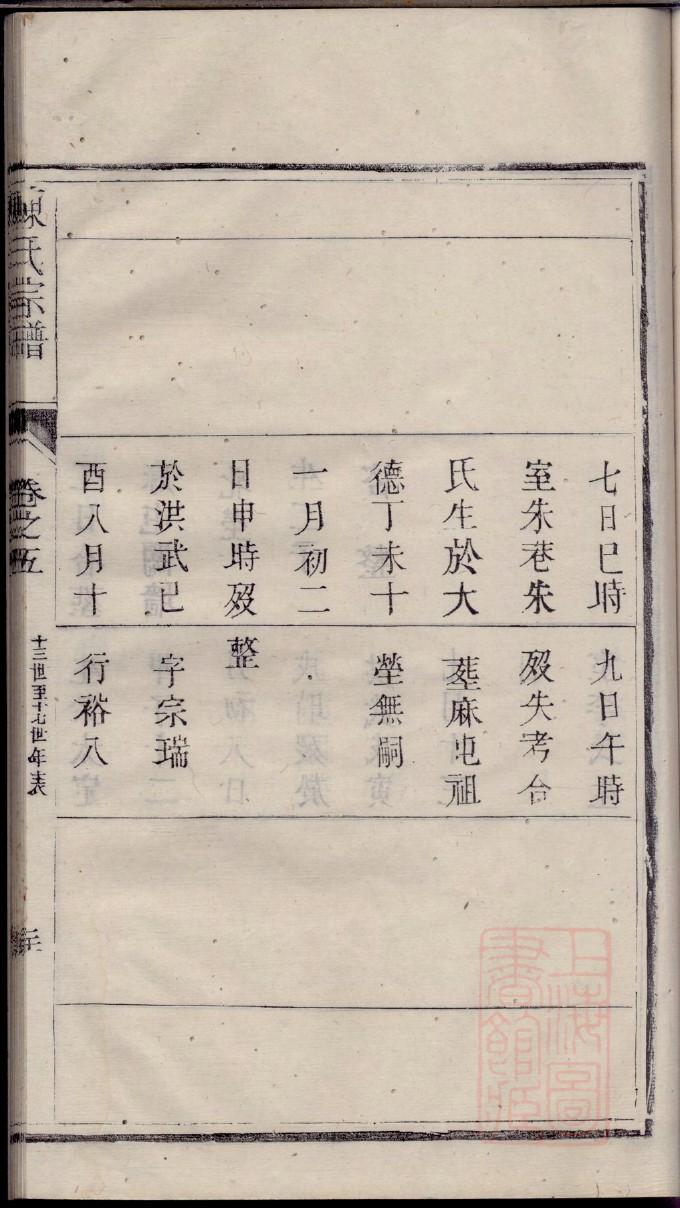 七日巳時
室朱巷朱
氏生於大
德丁未十
一月初二
日申時歿
於洪武己
酉八月十
九日午時
歿失考合
塟麻屯祖
塋無嗣
整
字宗瑞
行裕八
陳氏宗譜
卷之五
十三世至十七世年表
上海圖書館藏